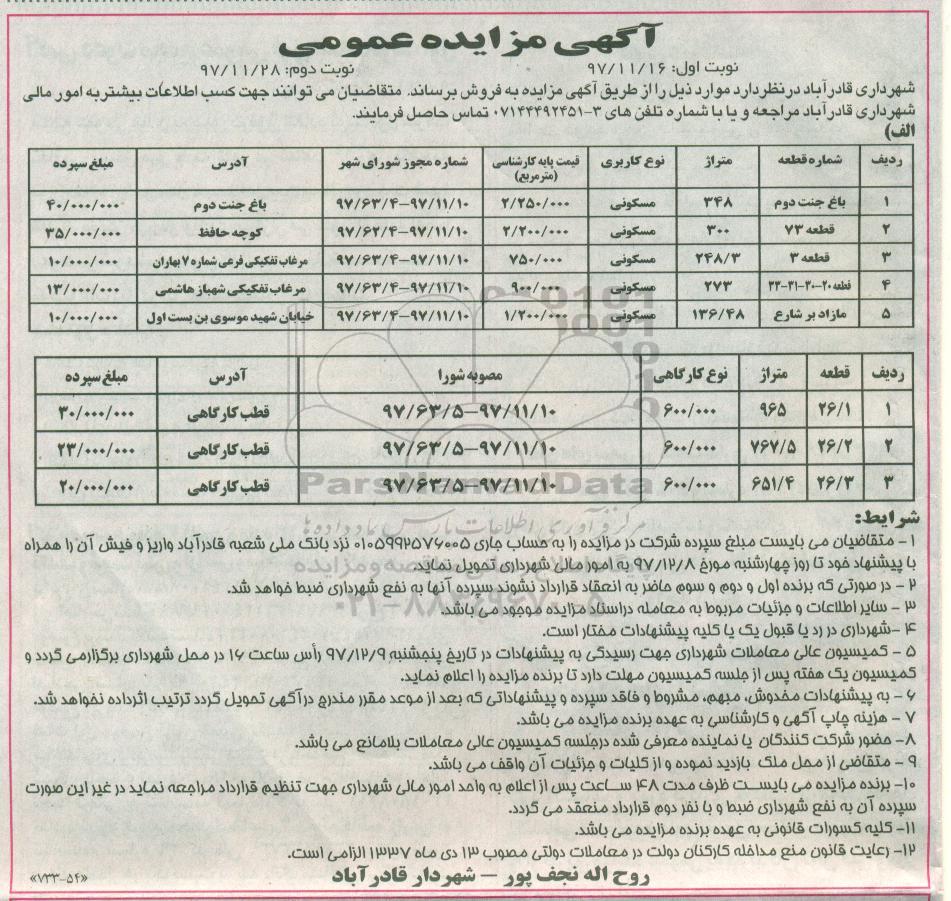 آگهی مزایده عمومی
نوبت اول: ۹۷/۱۱/۱۶ نوبت دوم: ۹۷/۱۱/۲۸
شهرداری قادرآباد در نظر دارد موارد ذیل را از طریق آگهی مزایده به فروش برساند. متقاضیان می توانند جهت کسب اطلاعات بیشتر به امور مالی
شهرداری قادرآباد مراجعه و یا با شماره تلفن های ۳-۰۷۱۴۴۴۹۲۴۵۱ تماس حاصل فرمایند.
الف)
ردیف شماره قطعه متراژ نوع کاربری قیمت پایه کارشناسی (مترمربع) شماره مجوز شورای شهر آدرس مبلغ سپرده
۱ باغ جنت دوم ۳۴۸ مسکونی ۲/۲۵۰/۰۰۰ ۹۷/۶۳/۴-۹۷/۱۱/۱۰ باغ جنت دوم ۴۰/۰۰۰/۰۰۰
۲ قطعه ۷۳ ۳۰۰ مسکونی ۲/۲۰۰/۰۰۰ ۹۷/۶۲/۴-۹۷/۱۱/۱۰ کوچه حافظ ۳۵/۰۰۰/۰۰۰
۳ قطعه ۳ ۲۴۸/۳ مسکونی ۷۵۰/۰۰۰ ۹۷/۶۳/۴-۹۷/۱۱/۱۰ مرغاب تفکیکی فرعی شماره ۷ بهاران ۱۰/۰۰۰/۰۰۰
۴ قطعه ۲۰-۳۰-۳۱-۳۳ ۲۷۳ مسکونی ۹۰۰/۰۰۰ ۹۷/۶۳/۴-۹۷/۱۱/۱۰ مرغاب تفکیکی شهباز هاشمی ۱۳/۰۰۰/۰۰۰
۵ مازاد بر شارع ۱۳۶/۴۸ مسکونی ۱/۲۰۰/۰۰۰ ۹۷/۶۳/۴-۹۷/۱۱/۱۰ خیابان شهید موسوی بن بست اول ۱۰/۰۰۰/۰۰۰
ردیف قطعه متراژ نوع کارگاهی مصوبه شورا آدرس مبلغ سپرده
۱ ۲۶/۱ ۹۶۵ ۶۰۰/۰۰۰ ۹۷/۶۳/۵-۹۷/۱۱/۱۰ قطب کارگاهی ۳۰/۰۰۰/۰۰۰
۲ ۲۶/۲ ۷۶۷/۵ ۶۰۰/۰۰۰ ۹۷/۶۳/۵-۹۷/۱۱/۱۰ قطب کارگاهی ۲۳/۰۰۰/۰۰۰
۳ ۲۶/۳ ۶۵۱/۴ ۶۰۰/۰۰۰ ۹۷/۶۳/۵-۹۷/۱۱/۱۰ قطب کارگاهی ۲۰/۰۰۰/۰۰۰
ParsNamadData
شرایط:
۱- متقاضیان می بایست مبلغ سپرده شرکت در مزایده را به حساب جاری ۰۱۰۵۹۹۲۵۷۶۰۰۵ نزد بانک ملی شعبه قادرآباد واریز و فیش آن را همراه
با پیشنهاد خود تا روز چهارشنبه مورخ ۹۷/۱۲/۸ به امور مالی شهرداری تحویل نماید.
۲- در صورتی که برنده اول و دوم و سوم حاضر به انعقاد قرارداد نشوند سپرده آنها به نفع شهرداری ضبط خواهد شد.
۳- سایر اطلاعات و جزئیات مربوط به معامله در اسناد مزایده موجود می باشد.
۴- شهرداری در رد یا قبول یک یا کلیه پیشنهادات مختار است.
۵- کمیسیون عالی معاملات شهرداری جهت رسیدگی به پیشنهادات در تاریخ پنجشنبه ۹۷/۱۲/۹ رأس ساعت ۱۶ در محل شهرداری برگزار می گردد و
کمیسیون یک هفته پس از جلسه کمیسیون مهلت دارد تا برنده مزایده را اعلام نماید.
۶- به پیشنهادات مخدوش، مبهم، مشروط و فاقد سپرده و پیشنهاداتی که بعد از موعد مقرر مندرج در آگهی تحویل گردد ترتیب اثر داده نخواهد شد.
۷- هزینه چاپ آگهی و کارشناسی به عهده برنده مزایده می باشد.
۸- حضور شرکت کنندگان یا نماینده معرفی شده در جلسه کمیسیون عالی معاملات بلامانع می باشد.
۹- متقاضی از محل ملک بازدید نموده و از کلیات و جزئیات آن واقف می باشد.
۱۰- برنده مزایده می بایست ظرف مدت ۴۸ ساعت پس از اعلام به واحد امور مالی شهرداری جهت تنظیم قرارداد مراجعه نماید در غیر این صورت
سپرده آن به نفع شهرداری ضبط و با نفر دوم قرارداد منعقد می گردد.
۱۱- کلیه کسورات قانونی به عهده برنده مزایده می باشد.
۱۲- رعایت قانون منع مداخله کارکنان دولت در معاملات دولتی مصوب ۱۳ دی ماه ۱۳۳۷ الزامی است.
روح اله نجف پور – شهردار قادرآباد
«۷۳۳-۵۴»